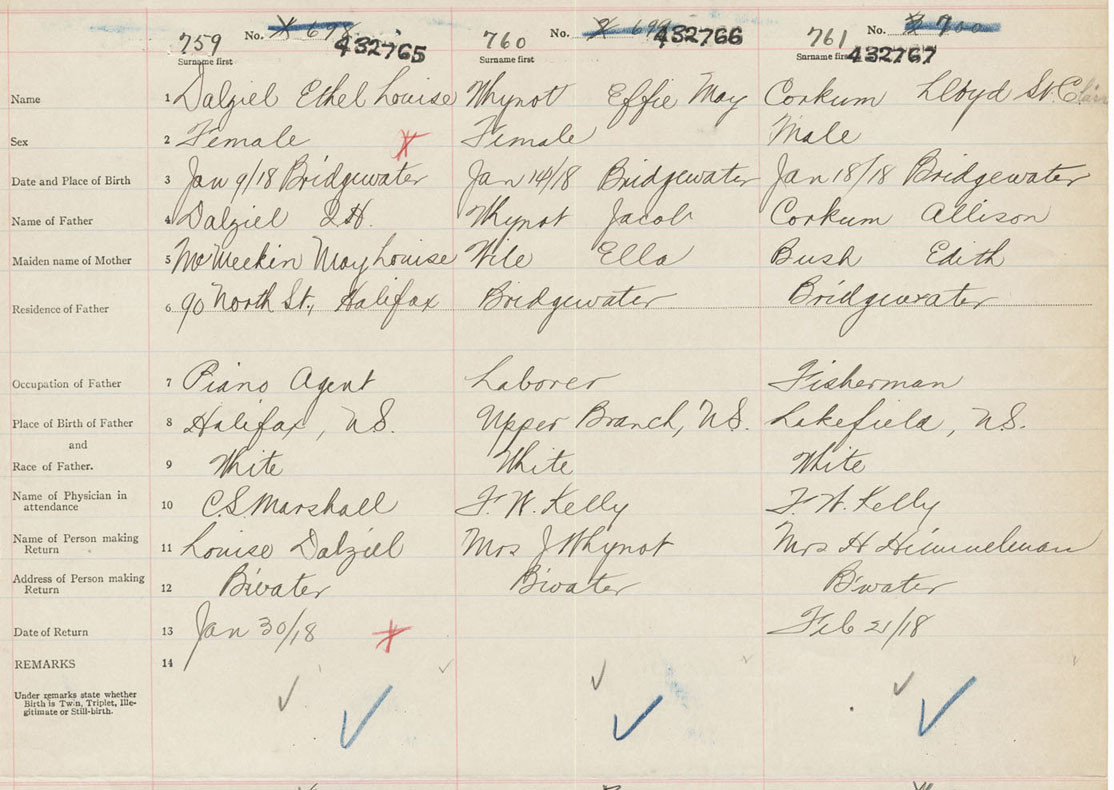 759 No. 432765 760 No. 432766 761 No. 432767
Surname first Surname first Surname first
Name 1 Dalziel Ethel Louise Whynot Effie May Corkum Lloyd St. Clair
Sex 2 Female Female Male
Date and Place of Birth 3 Jan 9/18 Bridgewater Jan 14/18 Bridgewater Jan 18/18 Bridgewater
Name of Father 4 Dalziel H. Whynot Jacob Corkum Allison
Maiden name of Mother 5 McMeekin May Louise Wile Ella Bush Edith
Residence of Father 6 90 North St., Halifax Bridgewater Bridgewater
Occupation of Father 7 Piano Agent Laborer Fisherman
Place of Birth of Father 8 Halifax, N.S. Upper Branch, N.S. Lakefield, N.S.
and
Race of Father. 9 White White White
Name of Physician in attendance 10 C.S. Marshall F. W. Kelly F. W. Kelly
Name of Person making Return 11 Louise Dalziel Mrs J Whynot Mrs H Himmelman
Address of Person making Return 12 B'water B'water B'water
Date of Return 13 Jan 30/18 Feb 21/18
REMARKS 14
Under remarks state whether
Birth is Twin, Triplet, Ille-
gitimate or Still-birth.